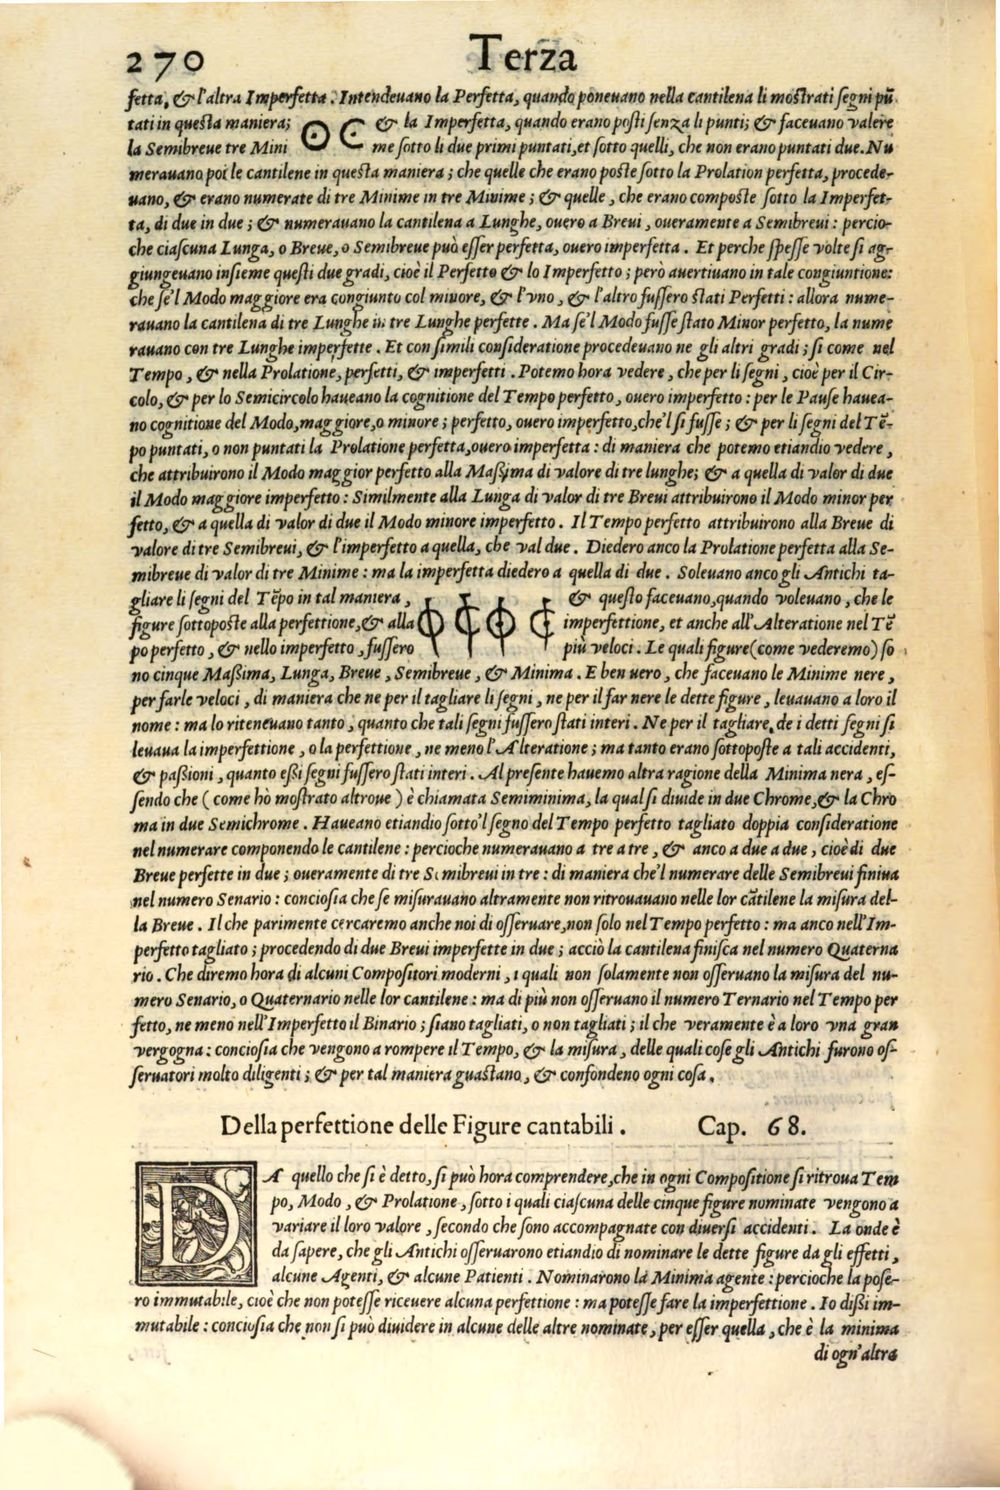 270 Terza
fetta, & l'altra Imperfetta. Intendeuano la Perfetta, quando poneuano nella cantilena li mostrati segni pũ
tati in questa maniera; & la Imperfetta, quando erano posti senza li punti; & faceuano valere
la Semibreue tre Mini me sotto li due primi puntati, et sotto quelli, che non erano puntati due. Nu
merauano poi le cantilene in questa maniera; che quelle che erano poste sotto la Prolation perfetta, procede-
uano, & erano numerate di tre Minime in tre Minime; & quelle, che erano composte sotto la Imperfet-
ta, di due in due; & numerauano la cantilena a Lunghe, ouero a Breui, oueramente a Semibreui: percio-
che ciascuna Lunga, o Breue, o Semibreue può esser perfetta, ouero imperfetta. Et perche spesse volte si ag-
giungeuano insieme questi due gradi, cioè il Perfetto & lo Imperfetto; però auertiuano in tale congiuntione:
che se'l Modo maggiore era congiunto col minore, & l'vno, & l'altro fussero stati Perfetti: allora nume-
rauano la cantilena di tre Lunghe in tre Lunghe perfette. Ma se'l Modo fusse stato Minor perfetto, la nume
rauano con tre Lunghe imperfette. Et con simili consideratione procedeuano ne gli altri gradi; si come nel
Tempo, & nella Prolatione, perfetti, & imperfetti. Potemo hora vedere, che per li segni, cioè per il Cir-
colo, & per lo Semicircolo haueano la cognitione del Tempo perfetto, ouero imperfetto: per le Pause hauea-
no cognitione del Modo, maggiore, o minore; perfetto, ouero imperfetto, che'l si fusse; & per li segni del Tẽ-
po puntati, o non puntati la Prolatione perfetta, ouero imperfetta: di maniera che potemo etiandio vedere,
che attribuirono il Modo maggior perfetto alla Massima di valore di tre lunghe; & a quella di valor di due
il Modo maggiore imperfetto: Similmente alla Lunga di valor di tre Breui attribuirono il Modo minor per
fetto, & a quella di valor di due il Modo minore imperfetto. Il Tempo perfetto attribuirono alla Breue di
valore di tre Semibreui, & l'imperfetto a quella, che val due. Diedero anco la Prolatione perfetta alla Se-
mibreue di valor di tre Minime: ma la imperfetta diedero a quella di due. Soleuano anco gli Antichi ta-
gliare li segni del Tẽpo in tal maniera, & questo faceuano, quando voleuano, che le
figure sottoposte alla perfettione, & alla imperfettione, et anche all'Alteratione nel Tẽ
po perfetto, & nello imperfetto, fussero più veloci. Le quali figure (come vederemo) so
no cinque Massima, Lunga, Breue, Semibreue, & Minima. E ben vero, che faceuano le Minime nere,
per farle veloci, di maniera che ne per il tagliare li segni, ne per il far nere le dette figure, leuauano a loro il
nome: ma lo riteneuano tanto, quanto che tali segni fussero stati interi. Ne per il tagliare, de i detti segni si
leuaua la imperfettione, o la perfettione, ne meno l'Alteratione; ma tanto erano sottoposte a tali accidenti,
& passioni, quanto essi segni fussero stati interi. Al presente hauemo altra ragione della Minima nera, es-
sendo che (come hò mostrato altroue) è chiamata Semiminima, la qual si diuide in due Chrome, & la Chro
ma in due Semichrome. Haueano etiandio sotto'l segno del Tempo perfetto tagliato doppia consideratione
nel numerare componendo le cantilene: percioche numerauano a tre a tre, & anco a due a due, cioè di due
Breue perfette in due; oueramente di tre Semibreui in tre: di maniera che'l numerare delle Semibreui finiua
nel numero Senario: conciosia che se misurauano altramente non ritrouauano nelle lor cãtilene la misura del-
la Breue. Il che parimente cercaremo anche noi di osseruare, non solo nel Tempo perfetto: ma anco nell'Im-
perfetto tagliato; procedendo di due Breui imperfette in due; acciò la cantilena finisca nel numero Quaterna
rio. Che diremo hora di alcuni Compositori moderni, i quali non solamente non osseruano la misura del nu-
mero Senario, o Quaternario nelle lor cantilene: ma di più non osseruano il numero Ternario nel Tempo per
fetto, ne meno nell'Imperfetto il Binario; siano tagliati, o non tagliati; il che veramente è a loro vna gran
vergogna: conciosia che vengono a rompere il Tempo, & la misura, delle quali cose gli Antichi furono os-
seruatori molto diligenti; & per tal maniera guastano, & confondeno ogni cosa.
Della perfettione delle Figure cantabili. Cap. 68.
DA quello che si è detto, si può hora comprendere, che in ogni Compositione si ritroua Tem
po, Modo, & Prolatione, sotto i quali ciascuna delle cinque figure nominate vengono a
variare il loro valore, secondo che sono accompagnate con diuersi accidenti. La onde è
da sapere, che gli Antichi osseruarono etiandio di nominare le dette figure da gli effetti,
alcune Agenti, & alcune Patienti. Nominarono la Minima agente: percioche la pose-
ro immutabile, cioè che non potesse riceuere alcuna perfettione: ma potesse fare la imperfettione. Io dissi im-
mutabile: conciosia che non si può diuidere in alcune delle altre nominate, per esser quella, che è la minima
di ogn'altra